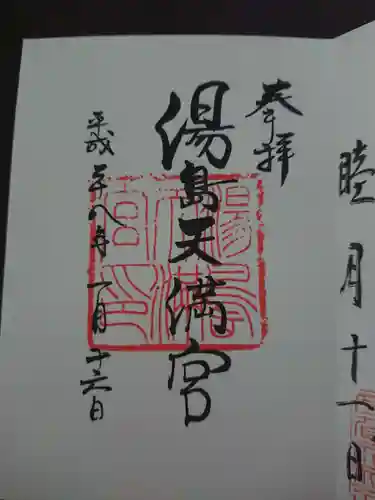 睦月十一日
奉拝
湯島天満宮
平成二十八年一月二十六日
湯島
天満
宮印